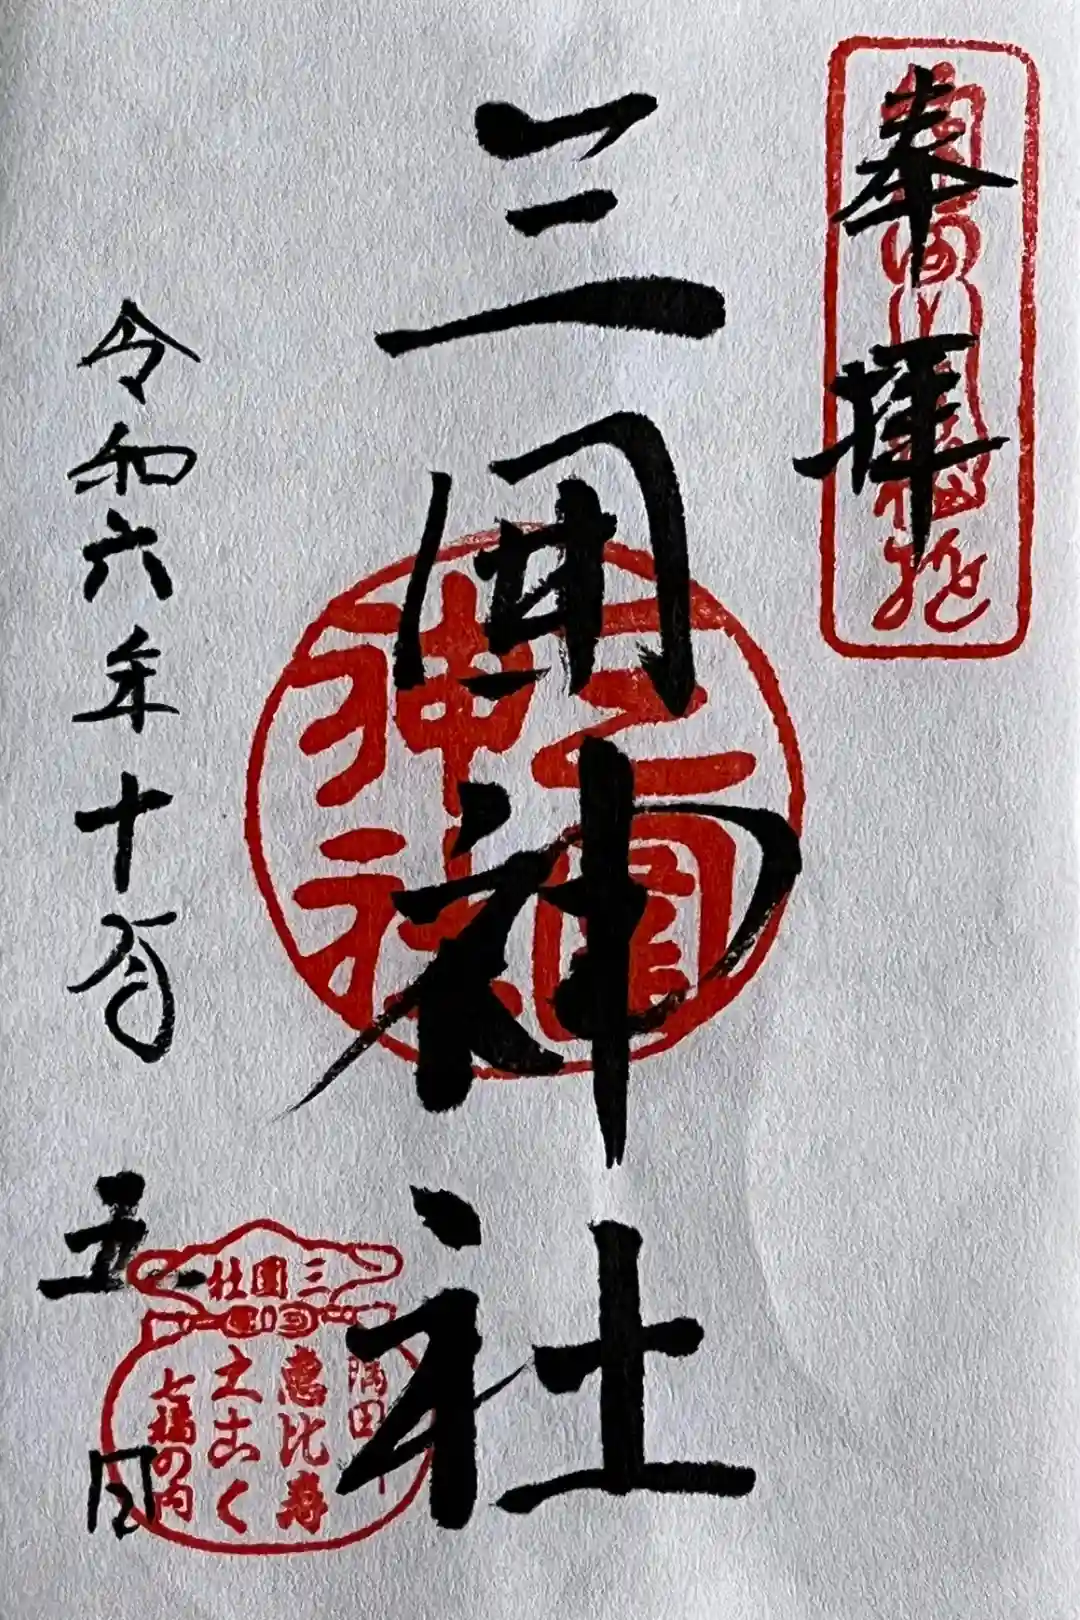 奉拝
三囲神社
三圍神社
令和六年十一月五日
三圍社
隅田
惠比寿
大こく
七福の内